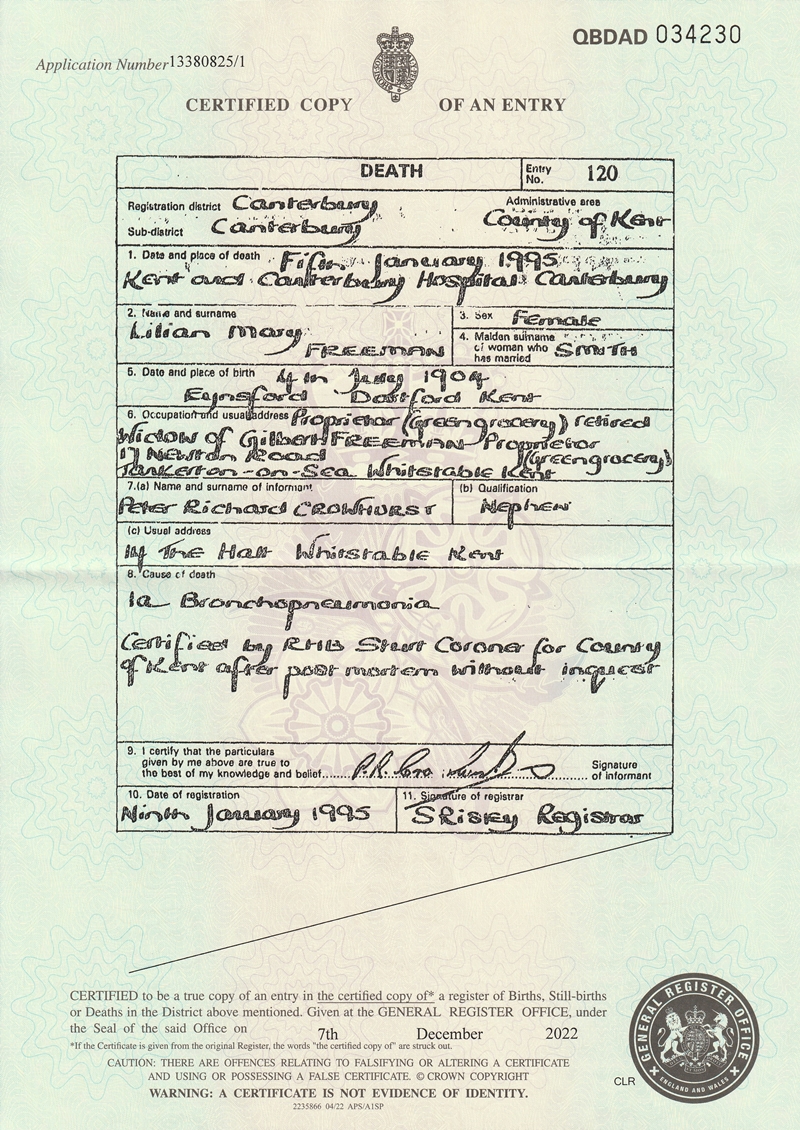 QBDAD 034230
Application Number 13380825/1
CERTIFIED COPY OF AN ENTRY
DEATH Entry No. 120
Registration district Canterbury Administrative area
Sub-district Canterbury County of Kent
1. Date and place of death Fifth January 1995
Kent and Canterbury Hospital Canterbury
2. Name and surname
Lilian Mary
FREEMAN
3. Sex Female
4. Maiden surname of woman who has married SMITH
5. Date and place of birth 4th July 1904
Eynsford Dartford Kent
6. Occupation and usual address Proprietor (Greengrocery) retired
Widow of Gilbert FREEMAN Proprietor
17 Newton Road (Greengrocery)
Tankerton-on-Sea Whitstable Kent
7.(a) Name and surname of informant
Peter Richard CROWHURST
(b) Qualification
Nephew
(c) Usual address
14 The Halt Whitstable Kent
8. Cause of death
1a Bronchopneumonia
Certified by RHB Sturt Coroner for County
of Kent after post mortem without inquest
9. I certify that the particulars
given by me above are true to
the best of my knowledge and belief
Signature
of informant
10. Date of registration
Ninth January 1995
11. Signature of registrar
Registrar
CERTIFIED to be a true copy of an entry in the certified copy of* a register of Births, Still-births
or Deaths in the District above mentioned. Given at the GENERAL REGISTER OFFICE, under
the Seal of the said Office on 7th December 2022
*If the Certificate is given from the original Register, the words "the certified copy of" are struck out.
CAUTION: THERE ARE OFFENCES RELATING TO FALSIFYING OR ALTERING A CERTIFICATE
AND USING OR POSSESSING A FALSE CERTIFICATE. © CROWN COPYRIGHT
WARNING: A CERTIFICATE IS NOT EVIDENCE OF IDENTITY.
2235866 04/22 APS/A1SP
CLR
GENERAL REGISTER OFFICE
ENGLAND AND WALES